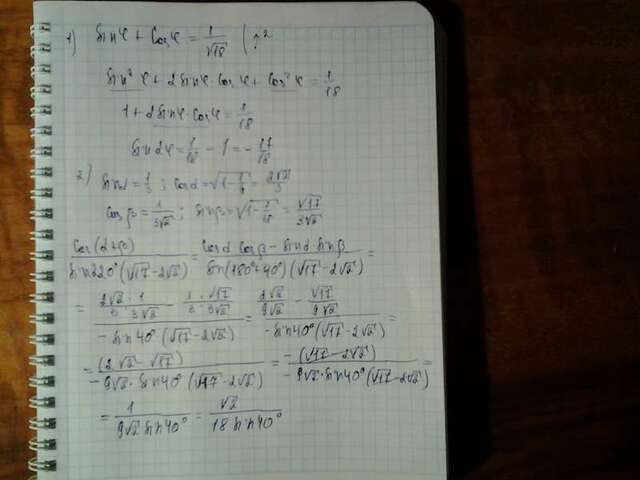 1) sin φ + cos φ = 1/√18 (↑2
sin² φ + 2 sin φ · cos φ + cos² φ = 1/18
1 + 2 sin φ · cos φ = 1/18
sin 2φ = 1/18 - 1 = - 17/18
2) sin α = 1/3 ; cos α = √(1 - 1/9) = 2√2/3
cos β = 1/3√2 ; sin β = √(1 - 1/18) = √17/3√2
cos(α+β)/sin 220° (√17 - 2√2) = cos α cos β - sin α sin β/sin(180°+40°)(√17 - 2√2) =
= 2√2/3 · 1/3√2 - 1/3 · √17/3√2/- sin 40° (√17 - 2√2) = 2√2/9√2 - √17/9√2/- sin 40° (√17 - 2√2) =
= (2√2 - √17)/- 9√2 · sin 40° (√17 - 2√2) = - (√17 - 2√2)/- 9√2 · sin 40° (√17 - 2√2) =
= 1/9√2 sin 40° = √2/18 sin 40°